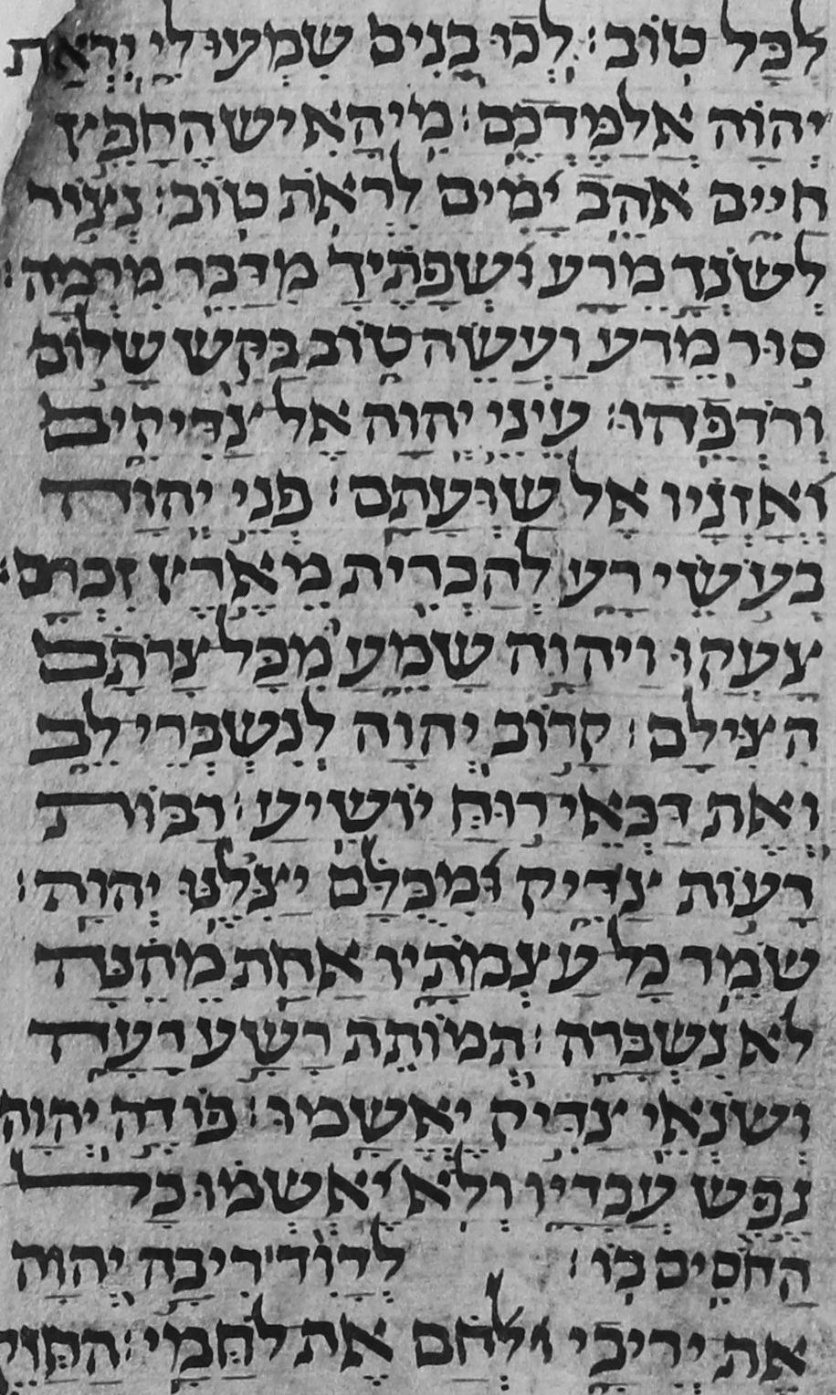 לכל טוב׃ לכו בנים שמעו לי יראת
יהוה אלמדכם׃ מי האיש החפץ
חיים אהב ימים לראת טוב׃ נצור
לשנך מרע ושפתיך מדבר מרמה׃
סור מרע ועשה טוב בקש שלום
ורדפהו׃ עיני יהוה אל צדיקים
ואזניו אל שועתם׃ פני יהוה
בעשי רע להכרית מארץ זכרם׃
צעקו ויהוה שמע מכל צרתם
הצילם׃ קרוב יהוה לנשברי לב
ואת דכאי רוח יושיע׃ רבות
רעות צדיק ומכלם יצלנו יהוה׃
שמר כל עצמתיו אחת מהנה
לא נשברה׃ תמותת רשע רעה
ושנאי צדיק יאשמו׃ פודה יהוה
נפש עבדיו ולא יאשמו כל
החסים בו׃ לדוד ריבה יהוה
את יריבי ולחם את לחמי׃ החזק